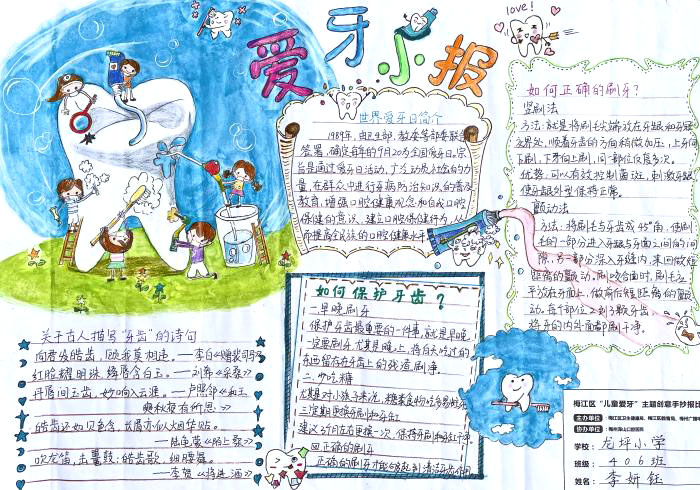 爱牙小报
love!
世界爱牙日简介
1989年,由卫生部、教委等部委联合
签署,确定每年的9月20为全国爱牙日。宗
旨是通过爱牙日活动,广泛动员社会的力
量,在群众中进行牙病防治知识的普及
教育,增强口腔健康观念和自我口腔
保健的意识,建立口腔保健行为,从
而提高全民族的口腔健康水平
如何正确的刷牙?
竖刷法
方法:就是将刷毛尖端放在牙龈和牙冠
交界处,顺着牙齿的方向稍微加压,上牙向
下刷,下牙向上刷,同一部位反复多次。
优势:可以有效控制菌斑,刺激牙龈
使牙龈外型保持正常。
颤动法
方法:将刷毛与牙齿成45°角,使刷
毛的一部分进入牙龈与牙面之间的间
隙,另一部分深入牙缝内,来回做短
距离的颤动。刷咬合面时,刷毛应
平放在牙面上,做前后短距离的颤
动。每个部位之刷3颗牙齿
将牙的内外面都刷干净。
关于古人描写“牙齿”的诗句
红脸耀明珠,绛唇含白玉。
丹唇间玉齿,妙响入云涯。
皓齿还如贝色含,长眉亦似烟华贴。
吹龙笛,击鼍鼓;皓齿歌,细腰舞。
——李贺《将进酒》
如何保护牙齿?
一.早晚刷牙
保护牙齿最重要的一件事,就是早晚
一定要刷牙,尤其是晚上,将白天吃过的
东西留存在牙齿上的残渣刷净。
二.少吃糖
三定期更换牙刷和牙膏
四正确的刷牙
梅江区“儿童爱牙”主题创意手抄报比
主办单位:
协办单位:
学校:龙坪小学
班级:406班
姓名:李妍钰